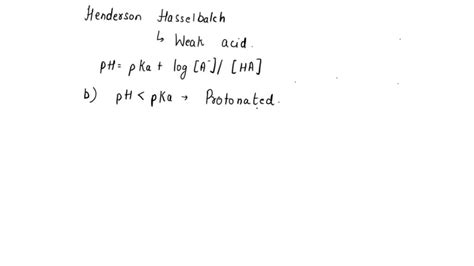 Henderson Hasselbalch
↳ Weak acid.
pH = pKa + log [A⁻] / [HA]
b) pH < pKa → Protonated.